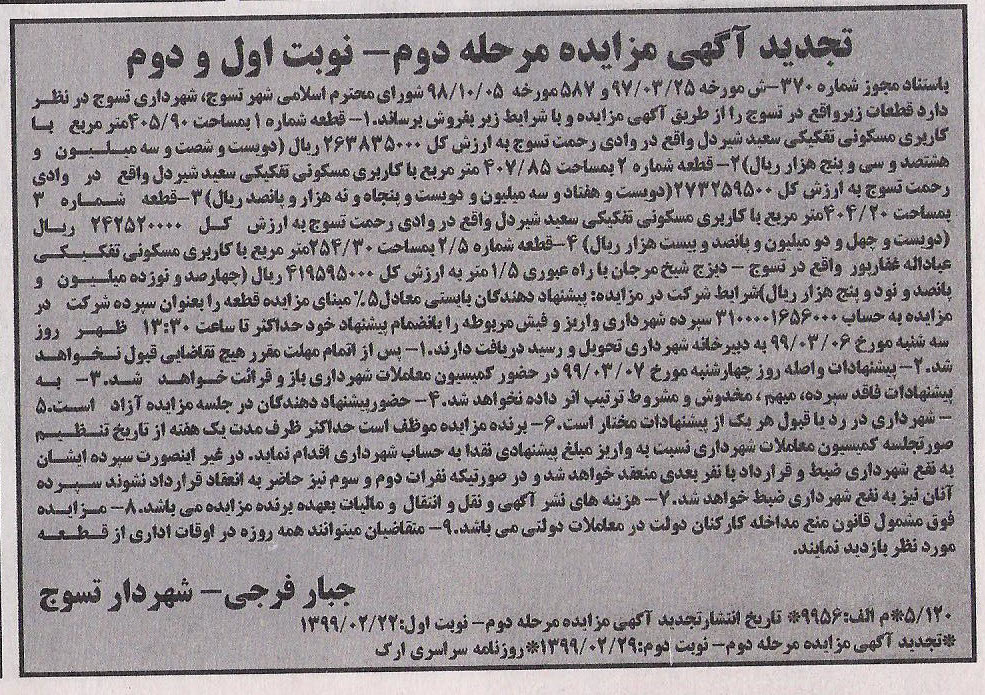 تجدید آگهی مزایده مرحله دوم- نوبت اول و دوم
باستناد مجوز شماره ۳۷۰-ش مورخه ۹۷/۰۳/۲۵ و ۵۸۷ مورخه ۹۸/۱۰/۰۵ شورای محترم اسلامی شهر تسوج، شهرداری تسوج در نظر
دارد قطعات زیرواقع در تسوج را از طریق آگهی مزایده و با شرایط زیر بفروش برساند. ۱- قطعه شماره ۱ بمساحت ۴۰۵/۹۰متر مربع با
کاربری مسکونی تفکیکی سعید شیردل واقع در وادی رحمت تسوج به ارزش کل ۲۶۳۸۳۵۰۰۰ ریال (دویست و شصت و سه میلیون و
هشتصد و سی و پنج هزار ریال)۲- قطعه شماره ۲ بمساحت ۴۰۷/۸۵ متر مربع با کاربری مسکونی تفکیکی سعید شیردل واقع در وادی
رحمت تسوج به ارزش کل ۲۷۳۲۵۹۵۰۰(دویست و هفتاد و سه میلیون و دویست و پنجاه و نه هزار و پانصد ریال)۳-قطعه شماره ۳
بمساحت ۴۰۴/۲۰متر مربع با کاربری مسکونی تفکیکی سعید شیردل واقع در وادی رحمت تسوج به ارزش کل ۲۴۲۵۲۰۰۰۰ ریال
(دویست و چهل و دو میلیون و پانصد و بیست هزار ریال) ۴-قطعه شماره ۲/۵ بمساحت ۲۵۴/۳۰متر مربع با کاربری مسکونی تفکیکی
عباداله غفارپور واقع در تسوج - دیزج شیخ مرجان با راه عبوری ۱/۵ متر به ارزش کل ۴۱۹۵۹۵۰۰۰ ریال (چهارصد و نوزده میلیون و
پانصد و نود و پنج هزار ریال)شرایط شرکت در مزایده: پیشنهاد دهندگان بایستی معادل۵٪ مبنای مزایده قطعه را بعنوان سپرده شرکت در
مزایده به حساب ۳۱۰۰۰۰۱۶۵۶۰۰۰ سپرده شهرداری واریز و فیش مربوطه را بانضمام پیشنهاد خود حداکثر تا ساعت ۱۳:۳۰ ظهر روز
سه شنبه مورخ ۹۹/۰۳/۰۶ به دبیرخانه شهرداری تحویل و رسید دریافت دارند. ۱- پس از اتمام مهلت مقرر هیچ تقاضایی قبول نخواهد
شد. ۲- پیشنهادات واصله روز چهارشنبه مورخ ۹۹/۰۳/۰۷ در حضور کمیسیون معاملات شهرداری باز و قرائت خواهد شد. ۳- به
پیشنهادات فاقد سپرده، مبهم، مخدوش و مشروط ترتیب اثر داده نخواهد شد. ۴- حضورپیشنهاد دهندگان در جلسه مزایده آزاد است. ۵
- شهرداری در رد یا قبول هر یک از پیشنهادات مختار است. ۶- برنده مزایده موظف است حداکثر ظرف مدت یک هفته از تاریخ تنظیم
صورتجلسه کمیسیون معاملات شهرداری نسبت به واریز مبلغ پیشنهادی نقدا به حساب شهرداری اقدام نماید. در غیر اینصورت سپرده ایشان
به نفع شهرداری ضبط و قرارداد با نفر بعدی منعقد خواهد شد و در صورتیکه نفرات دوم و سوم نیز حاضر به انعقاد قرارداد نشوند سپرده
آنان نیز به نفع شهرداری ضبط خواهد شد. ۷- هزینه های نشر آگهی و نقل و انتقال و مالیات بعهده برنده مزایده می باشد. ۸- مزایده
فوق مشمول قانون منع مداخله کارکنان دولت در معاملات دولتی می باشد. ۹- متقاضیان میتوانند همه روزه در اوقات اداری از قطعه
مورد نظر بازدید نمایند.
جبار فرجی- شهردار تسوج
۵/۱۲۰*م الف:۹۹۵۶* تاریخ انتشارتجدید آگهی مزایده مرحله دوم- نوبت اول:۱۳۹۹/۰۲/۲۲
*تجدید آگهی مزایده مرحله دوم- نوبت دوم:۱۳۹۹/۰۲/۲۹*روزنامه سراسری ارک